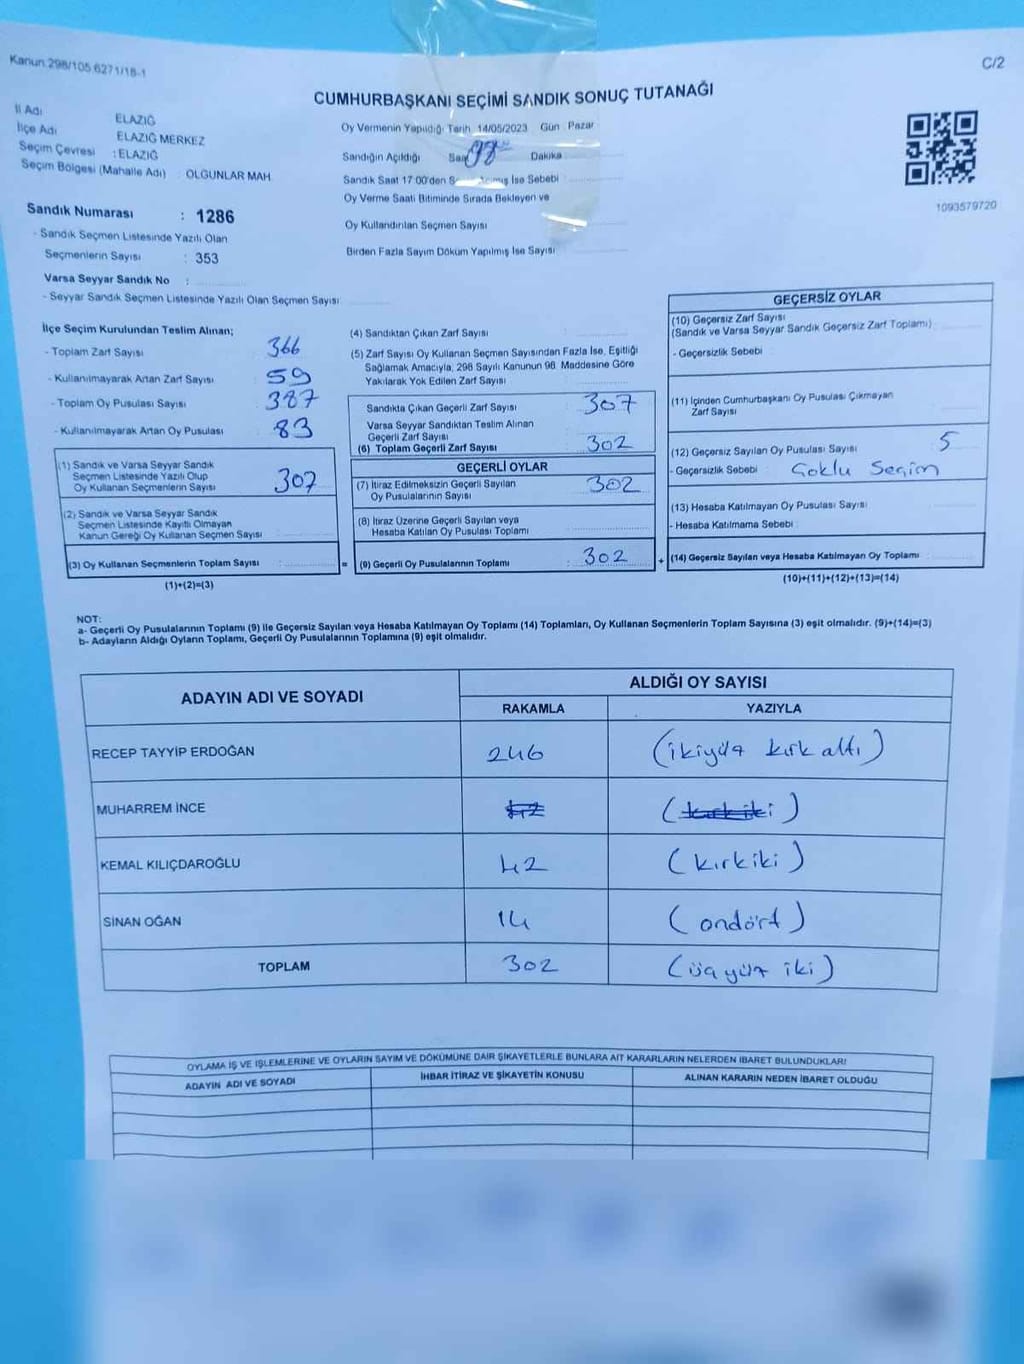 Kanun:298/105,6271/18-1
C/2
CUMHURBAŞKANI SEÇİMİ SANDIK SONUÇ TUTANAĞI
İl Adı ELAZIĞ
İlçe Adı ELAZIĞ MERKEZ
Seçim Çevresi : ELAZIĞ
Seçim Bölgesi (Mahalle Adı) : OLGUNLAR MAH.
Oy Vermenin Yapıldığı Tarih 14/05/2023 Gün Pazar
Sandığın Açıldığı Saat Dakika
Sandık Saat 17:00'den İse Sebebi :
Oy Verme Saati Bitiminde Sırada Bekleyen ve
Oy Kullandırılan Seçmen Sayısı
Birden Fazla Sayım Döküm Yapılmış İse Sayısı
1093579720
Sandık Numarası : 1286
- Sandık Seçmen Listesinde Yazılı Olan
Seçmenlerin Sayısı : 353
Varsa Seyyar Sandık No :
- Seyyar Sandık Seçmen Listesinde Yazılı Olan Seçmen Sayısı
İlçe Seçim Kurulundan Teslim Alınan;
- Toplam Zarf Sayısı 366
- Kullanılmayarak Artan Zarf Sayısı : 59
- Toplam Oy Pusulası Sayısı : 387
- Kullanılmayarak Artan Oy Pusulası : 83
(1) Sandık ve Varsa Seyyar Sandık
Seçmen Listesinde Yazılı Olup
Oy Kullanan Seçmenlerin Sayısı : 307
(2) Sandık ve Varsa Seyyar Sandık
Seçmen Listesinde Kayıtlı Olmayan
Kanun Gereği Oy Kullanan Seçmen Sayısı
(3) Oy Kullanan Seçmenlerin Toplam Sayısı :
(1)+(2)=(3)
(4) Sandıktan Çıkan Zarf Sayısı
(5) Zarf Sayısı Oy Kullanan Seçmen Sayısından Fazla İse, Eşitliği
Sağlamak Amacıyla, 298 Sayılı Kanunun 98. Maddesine Göre
Yakılarak Yok Edilen Zarf Sayısı
Sandıkta Çıkan Geçerli Zarf Sayısı : 307
Varsa Seyyar Sandıktan Teslim Alınan
Geçerli Zarf Sayısı
(6) Toplam Geçerli Zarf Sayısı : 302
GEÇERLİ OYLAR
(7) İtiraz Edilmeksizin Geçerli Sayılan
Oy Pusulalarının Sayısı : 302
(8) İtiraz Üzerine Geçerli Sayılan veya
Hesaba Katılan Oy Pusulası Toplamı
= (9) Geçerli Oy Pusulalarının Toplamı : 302 +
GEÇERSİZ OYLAR
(10) Geçersiz Zarf Sayısı
(Sandık ve Varsa Seyyar Sandık Geçersiz Zarf Toplamı)
- Geçersizlik Sebebi
(11) İçinden Cumhurbaşkanı Oy Pusulası Çıkmayan
Zarf Sayısı
(12) Geçersiz Sayılan Oy Pusulası Sayısı : 5
- Geçersizlik Sebebi : Çoklu Seçim
(13) Hesaba Katılmayan Oy Pusulası Sayısı
- Hesaba Katılmama Sebebi
(14) Geçersiz Sayılan veya Hesaba Katılmayan Oy Toplamı :
(10)+(11)+(12)+(13)=(14)
NOT:
a- Geçerli Oy Pusulalarının Toplamı (9) ile Geçersiz Sayılan veya Hesaba Katılmayan Oy Toplamı (14) Toplamları, Oy Kullanan Seçmenlerin Toplam Sayısına (3) eşit olmalıdır. (9)+(14)=(3)
b- Adayların Aldığı Oyların Toplamı, Geçerli Oy Pusulalarının Toplamına (9) eşit olmalıdır.
ADAYIN ADI VE SOYADI ALDIĞI OY SAYISI
RAKAMLA YAZIYLA
RECEP TAYYİP ERDOĞAN 246 (ikiyüz kırk altı)
MUHARREM İNCE
KEMAL KILIÇDAROĞLU 42 (kırkiki)
SİNAN OĞAN 14 (ondört)
TOPLAM 302 (üçyüz iki)
OYLAMA İŞ VE İŞLEMLERİNE VE OYLARIN SAYIM VE DÖKÜMÜNE DAİR ŞİKAYETLERLE BUNLARA AİT KARARLARIN NELERDEN İBARET BULUNDUKLARI
ADAYIN ADI VE SOYADI İHBAR İTİRAZ VE ŞİKAYETİN KONUSU ALINAN KARARIN NEDEN İBARET OLDUĞU